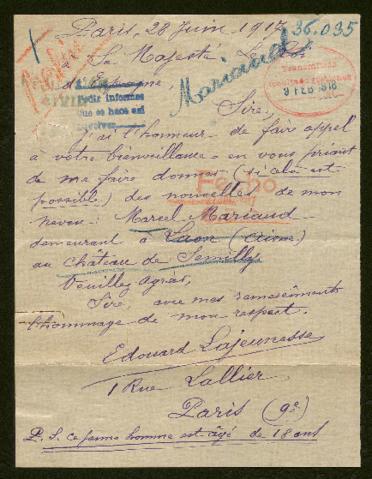 Paris, 28 Juin 1917
36.035
Sa Majesté Le Roi
d'Espagne
Mariaud
pedir informes
que se hace así
9 FEB 1918
Sire,
J'ai l'honneur de faire appel
à votre bienveillance en vous priant
de me faire donner (si cela est
possible) des nouvelles de mon
neveu : Marcel Mariaud
demeurant à Laon (Aisne)
au Château de Semilly
Veuillez agréer,
Sire, avec mes remerciements
l'hommage de mon respect.
Edouard Lajeunesse
1 Rue Lallier
Paris (9e)
P.S. Ce jeune homme est âgé de 18 ans